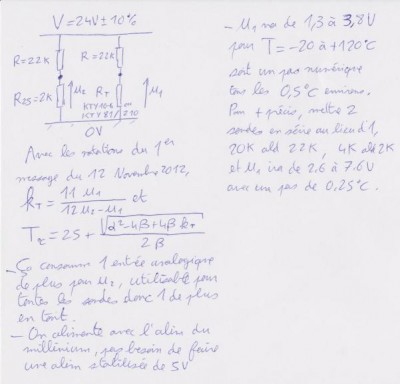 V = 24V ± 10%
R=22K
R=22K
R25=2K
u2
RT
u1
KTY10-6 ou
KTY81/210
0V
Avec les notations du 1er
message du 12 Novembre 2012,
kT = 11 u1 / 12 u2 - u1 et
T°c = 25 + √α²-4β+4β kT / 2β
- Ça consomme 1 entrée analogique
de plus pour u2, utilisable pour
toutes les sondes donc 1 de plus
en tout.
- On alimente avec l'alim du
millénium, pas besoin de faire
une alim stabilisée de 5V
- U1 va de 1,3 à 3,8V
pour T = -20 à +120°C
soit un pas numérique
tous les 0,5°C environ.
Pour + précis, mettre 2
sondes en série au lieu d'1,
20K ald 22K, 4K ald 2K
et u1 ira de 2.6 à 7.6V
avec un pas de 0.25°C.